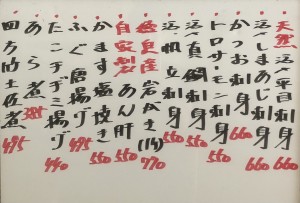 天然活〆平目刺身 660
活〆しまあじ刺身 660
かつお刺身 660
トロサーモン刺身 550
活〆真鯛刺身 550
活〆帆立刺身 550
岩がき(1ケ) 770
自家製あん肝 550
かます塩焼き 550
ふぐ唐揚げ 495
たこチヂミ揚げ 440
あら煮 385
四方竹土佐煮 495